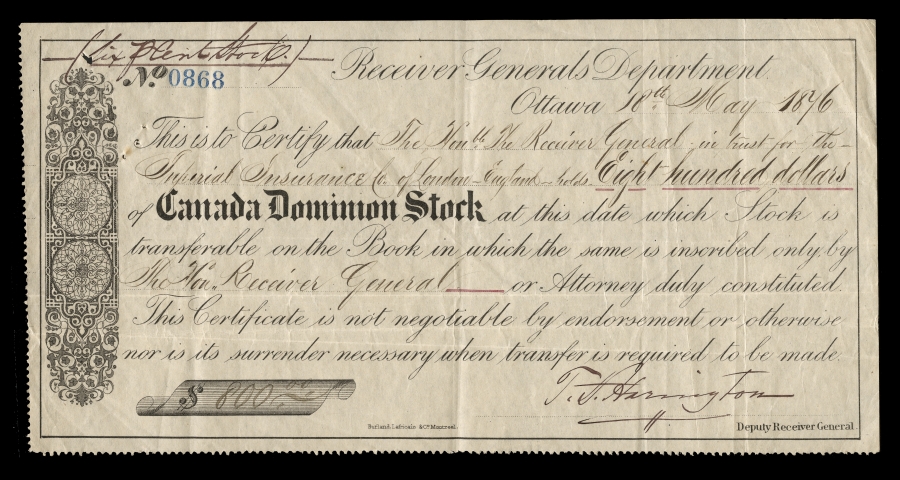 (Six p Cent Stock.)
No. 0868
Receiver Generals Department.
Ottawa 18th May 1876
This is to Certify that The Honble. The Receiver General in trust for the
Imperial Insurance Co. of London England holds Eight hundred dollars
of Canada Dominion Stock at this date which Stock is
transferable on the Book in which the same is inscribed only by
The Hon. Receiver General or Attorney duly constituted.
This Certificate is not negotiable by endorsement or otherwise
nor is its surrender necessary when transfer is required to be made.
$ 800.00
T. D. Harrington
Burland, Lafricain & Co. Montreal.
Deputy Receiver General